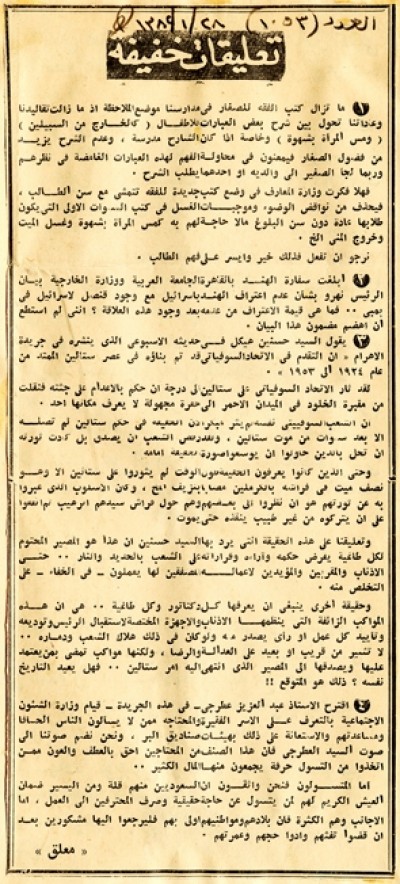 العدد (١٠٥٣) ٢٨/١/١٣٨٢
تعليقات خفيفة
١ ما تزال كتب الفقه للصغار في مدارسنا موضع الملاحظة اذ ما زالت تقاليدنا
وعاداتنا تحول بين شرح بعض العبارات للاطفال ( كالخارج من السبيلين )
( ومس المرأة بشهوة ) وخاصة اذا كان الشارح مدرسة ، وعدم الشرح يزيد
من فضول الصغار فيمعنون في محاولة الفهم لهذه العبارات الغامضة في نظرهم
وربما لجأ الصغير الى والديه او احدهما يطلب الشرح .
فهلا فكرت وزارة المعارف في وضع كتب جديدة للفقه تتمشى مع سن الطالب ،
فيحذف من نواقض الوضوء وموجبات الغسل في كتب السنوات الاولى التي يكون
طلابها عادة دون سن البلوغ مالا حاجة لهم به كمس المرأة بشهوة وغسل الميت
وخروج المني الخ .
نرجو ان تفعل فذلك خير وايسر على فهم الطالب .
٢ أبلغت سفارة الهند بالقاهرة الجامعة العربية ووزارة الخارجية ببيان
الرئيس نهرو بشأن عدم اعتراف الهند باسرائيل مع وجود قنصل لاسرائيل في
بمبى ٠٠ فما هي قيمة الاعتراف من عدمه بعد وجود هذه العلاقة ؟ انني لم استطع
أن اهضم مضمون هذا البيان .
٣ يقول السيد حسنين هيكل في حديثه الاسبوعي الذي ينشره في جريدة
الاهرام « ان التقدم في الاتحاد السوفياتي قد تم بناؤه في عصر ستالين الممتد من
عام ١٩٢٤ الى ١٩٥٣ » .
لقد ثار الاتحاد السوفياتي على ستالين الى درجة ان حكم بالاعدام على جثته فنقلت
من مقبرة الخلود في الميدان الاحمر الى حفرة مجهولة لا يعرف مكانها احد .
ان الشعب السوفييتي نفسه لم يثر
الا بعد سنوات من موت ستالين ،
وحتى الذين كانوا يعرفون الحقيقة
نصف ميت في فراشه بالكرملين مصابا بنزيف المخ ، وكان الاسلوب الذي عبروا
به عن ثورتهم هو ان نظروا الى بعضهم وهم حول فراش سيدهم الرهيب
على ان يتركوه من غير طبيب ينقذه حتى يموت .
وتعليقنا على هذه الحقيقة التي يرد بها السيد حسنين ان هذا هو المصير المحتوم
لكل طاغية يفرض حكمه وآراءه وقراراته على الشعب بالحديد والنار ٠٠ حتى
الاذناب والمقربين والمؤيدين لاعماله المصفقين لها يعملون - في الخفاء - على
التخلص منه .
وحقيقة أخرى ينبغي ان يعرفها كل دكتاتور وكل طاغية ٠٠ هي ان هذه
المواكب الزائفة التي ينظمها الاذناب والاجهزة المختصة لاستقبال الرئيس وتوديعه
وتأييد كل عمل او رأي يصدر منه ولو كان في ذلك هلاك الشعب ودماره ٠٠
لا تشير من قريب او بعيد على العدالة والرضا ، ولكنها مواكب تمضي بمن يعتمد
عليها ويصدقها الى المصير الذي انتهى اليه امر ستالين ٠٠ فهل يعيد التاريخ
نفسه ؟ ذلك هو المتوقع !!
٤ اقترح الاستاذ عبد العزيز عطرجي - في هذه الجريدة - قيام وزارة الشئون
الاجتماعية بالتعرف على الاسر الفقيرة والمحتاجه ممن لا يسألون الناس الحافا
ومساعدتهم والاستعانة على ذلك بهيئات صناديق البر ، ونحن نضم صوتنا الى
صوت السيد العطرجي فان هذا الصنف من المحتاجين احق بالعطف والعون ممن
اتخذوا من التسول حرفة يجمعون منها المال الكثير ٠٠
اما المتسولون فنحن واثقون ان السعوديين منهم قلة ومن اليسير ضمان
العيش الكريم لهم لمن يتسول عن حاجة حقيقية وصرف المحترفين الى العمل ، اما
الاجانب وهم الكثرة فان بلادهم ومواطنيهم اولى بهم فليرجعوا اليها مشكورين بعد
ان قضوا تفثهم وادوا حجهم وعمرتهم .
« معلق »